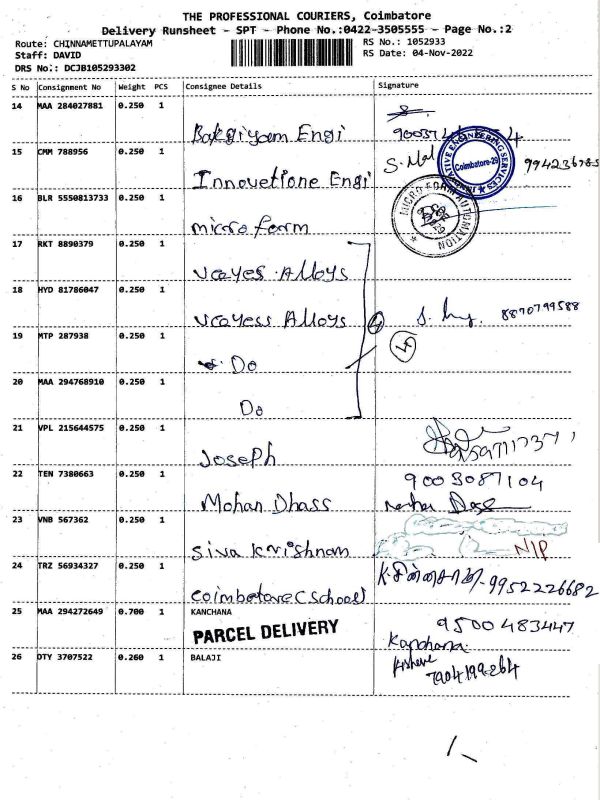 THE PROFESSIONAL COURIERS, Coimbatore
Delivery Runsheet - SPT - Phone No.:0422-3505555 - Page No.:2
Route: CHINNAMETTUPALAYAM RS No.: 1052933
Staff: DAVID RS Date: 04-Nov-2022
DRS No.: DCJB105293302
S No Consignment No Weight PCS Consignee Details Signature
14 MAA 284027881 0.250 1
Bakgiyam Engi
15 CMM 788956 0.250 1 S. Mal Coimbatore-29
Innovetione Engi
16 BLR 5550813733 0.250 1 MICRO FORM AUTOMATION
micro form
17 RKT 8890379 0.250 1
Vcayes Alloys
18 HYD 81786047 0.250 1
Vcayess Alloys 4 8870799588
19 MTP 287938 0.250 1 4
Do
20 MAA 294768910 0.250 1
Do
21 VPL 215644575 0.250 1
Joseph
22 TEN 7380663 0.250 1 9003087104
Mohan Dhass
23 VNB 567362 0.250 1
Siva Krishnam NIP
24 TRZ 56934327 0.250 1 9952226682
Coimbatore (School)
25 MAA 294272649 0.700 1 KANCHANA 9500483447
PARCEL DELIVERY Kanchana
26 DTY 3707522 0.260 1 BALAJI Kishore
7904199264